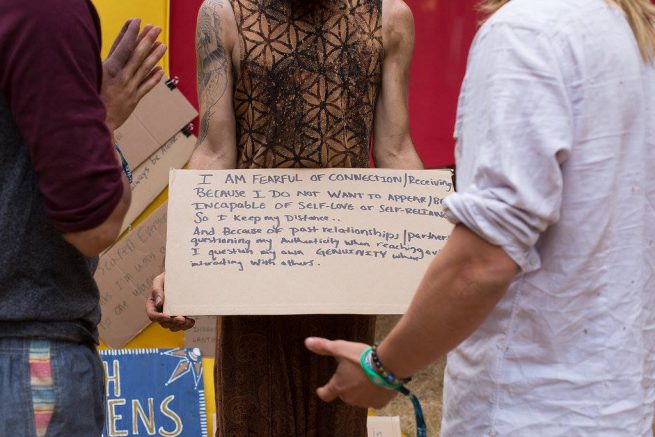 I AM FEARFUL OF CONNECTION/Receiving
BECAUSE I DO NOT WANT TO APPEAR/BE
INCAPABLE OF SELF-LOVE OR SELF-RELIANCE
So I Keep my Distance..
And Because of past relationships/partners
questioning my Authenticity when reaching out
I question my own GENUINITY when
interacting with others.
always be
H
ENS